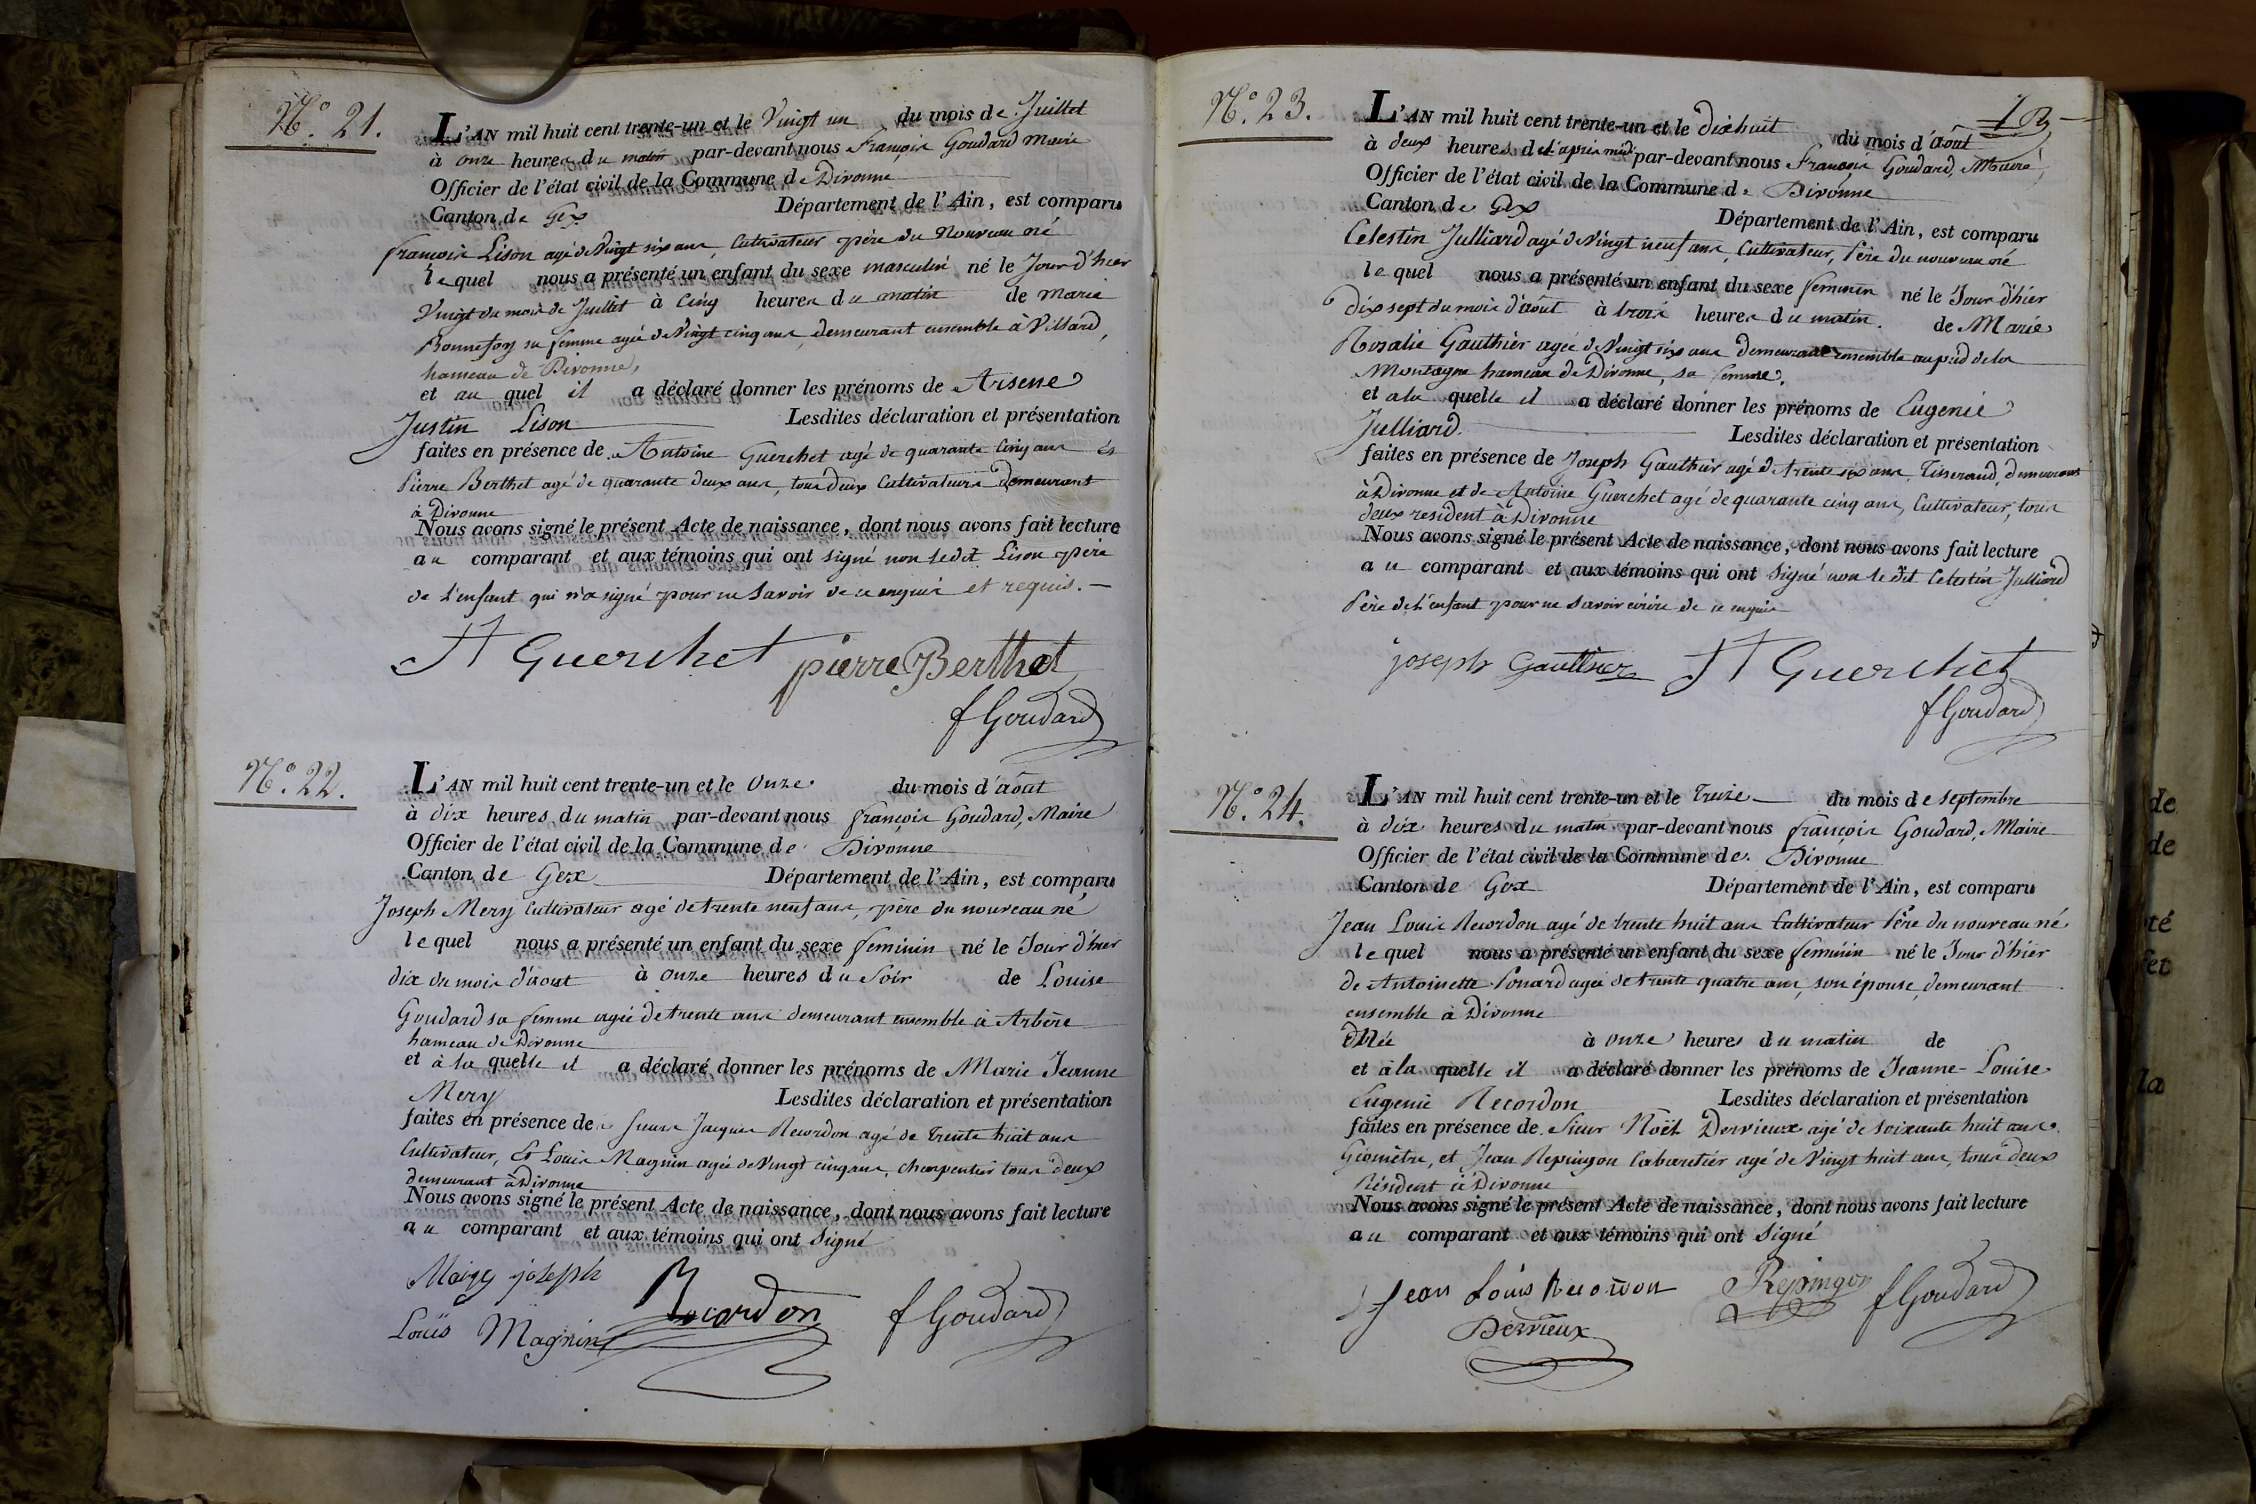 N.° 21.
L'AN mil huit cent trente-un et le Vingt un du mois de Juillet
à onze heures du matin par-devant nous François Goudard Maire
Officier de l'état civil de la Commune de Divonne
Canton de Gex Département de l'Ain, est comparu
françois Lison agé de Vingt six ans, Cultivateur père du Nouveau né
lequel nous a présenté un enfant du sexe masculin né le Jour d'hier
Vingt du mois de Juillet à Cinq heures du matin de Marie
Bonnefoy sa femme agée de Vingt cinq ans, demeurant ensemble à Villard,
hameau de Divonne,
et au quel il a déclaré donner les prénoms de Arsene
Justin Lison Lesdites déclaration et présentation
faites en présence de Antoine Guerchet agé de quarante Cinq ans et
Pierre Berthet agé de quarante deux ans, tous deux Cultivateurs demeurant
à Divonne
Nous avons signé le présent Acte de naissance, dont nous avons fait lecture
au comparant et aux témoins qui ont signé non ledit Lison père
de l'enfant qui n'a signé pour ne Savoir de ce enquis et requis.
A Guerchet pierre Berthet
f Goudard
N.° 22.
L'AN mil huit cent trente-un et le Onze du mois d'août
à dix heures du matin par-devant nous françois Goudard, Maire
Officier de l'état civil de la Commune de Divonne
Canton de Gex Département de l'Ain, est comparu
Joseph Mery Cultivateur agé de trente neuf ans, père du nouveau né
lequel nous a présenté un enfant du sexe feminin né le Jour d'hier
dix du mois d'aout à onze heures du Soir de Louise
Goudard sa femme agée de trente ans demeurant ensemble à Arbère
hameau de Divonne
et à la quelle il a déclaré donner les prénoms de Marie Jeanne
Mery Lesdites déclaration et présentation
faites en présence de Jacques Recordon agé de Trente huit ans
Cultivateur, Et Louis Magnin agé de Vingt cinq ans, charpentier tous deux
demeurant à Divonne
Nous avons signé le présent Acte de naissance, dont nous avons fait lecture
au comparant et aux témoins qui ont Signé
joseph Recordon f Goudard
Louis Magnin
N.° 23.
L'AN mil huit cent trente-un et le dixhuit du mois d'août
à deux heures de l'après midi par-devant nous françois Goudard, Maire,
Officier de l'état civil de la Commune de Divonne
Canton de Gex Département de l'Ain, est comparu
Celestin Julliard agé de Vingt neuf ans, Cultivateur, Père du nouveau né
lequel nous a présenté un enfant du sexe feminin né le Jour d'hier
dix sept du mois d'août à trois heures du matin. de Marie
Rosalie Gauthier agée de Vingt six ans demeurant ensemble au pied de la
Montagne hameau de Divonne, sa femme,
et a la quelle il a déclaré donner les prénoms de Eugenie
Julliard. Lesdites déclaration et présentation
faites en présence de Joseph Gauthier agé de trente six ans, Tisserand, demeurant
à Divonne et de Antoine Guerchet agé de quarante cinq ans, Cultivateur, tous
deux resident à Divonne
Nous avons signé le présent Acte de naissance, dont nous avons fait lecture
au comparant et aux témoins qui ont Signé non le dit Celestin Julliard
Père de l'enfant pour ne Savoir écrire de ce enquis
joseph Gauthier A Guerchet
f Goudard
N.° 24.
L'AN mil huit cent trente-un et le Treize du mois de septembre
à dix heures du matin par-devant nous françois Goudard, Maire
Officier de l'état civil de la Commune de Divonne
Canton de Gex Département de l'Ain, est comparu
Jean Louis Recordon agé de trente huit ans Cultivateur Père du nouveau né
lequel nous a présenté un enfant du sexe feminin né le Jour d'hier
de Antoinette Ponard agée de trente quatre ans, son épouse, demeurant
ensemble à Divonne
à onze heures du matin de
et à la quelle il a déclaré donner les prénoms de Jeanne-Louise
Eugenie Recordon Lesdites déclaration et présentation
faites en présence de Sieur Noël Dervieux agé de soixante huit ans
Géomètre, et Jean Repingon Cabaretier agé de Vingt huit ans, tous deux
Résident à Divonne
Nous avons signé le présent Acte de naissance, dont nous avons fait lecture
au comparant et aux témoins qui ont Signé
Jean Louis Recordon Repingon f Goudard
Dervieux
de
de
la